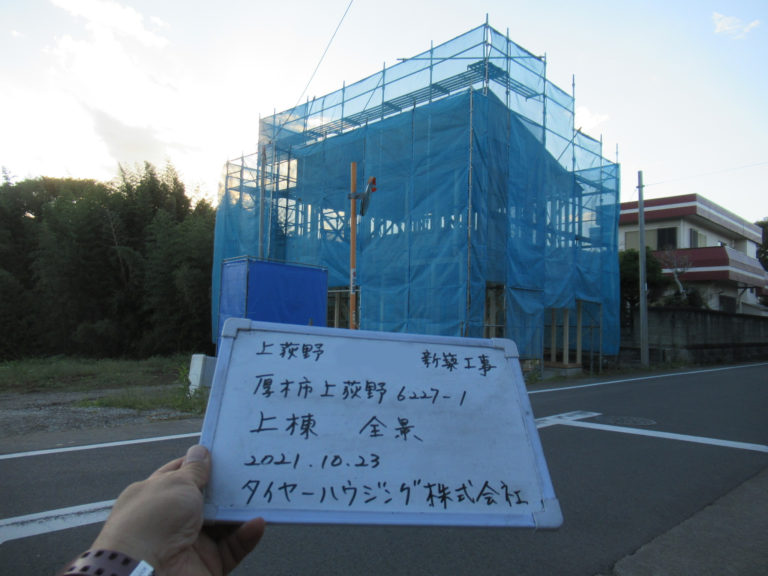 上荻野 新築工事
厚木市上荻野6227-1
上棟 全景
2021.10.23
タイヤーハウジング株式会社